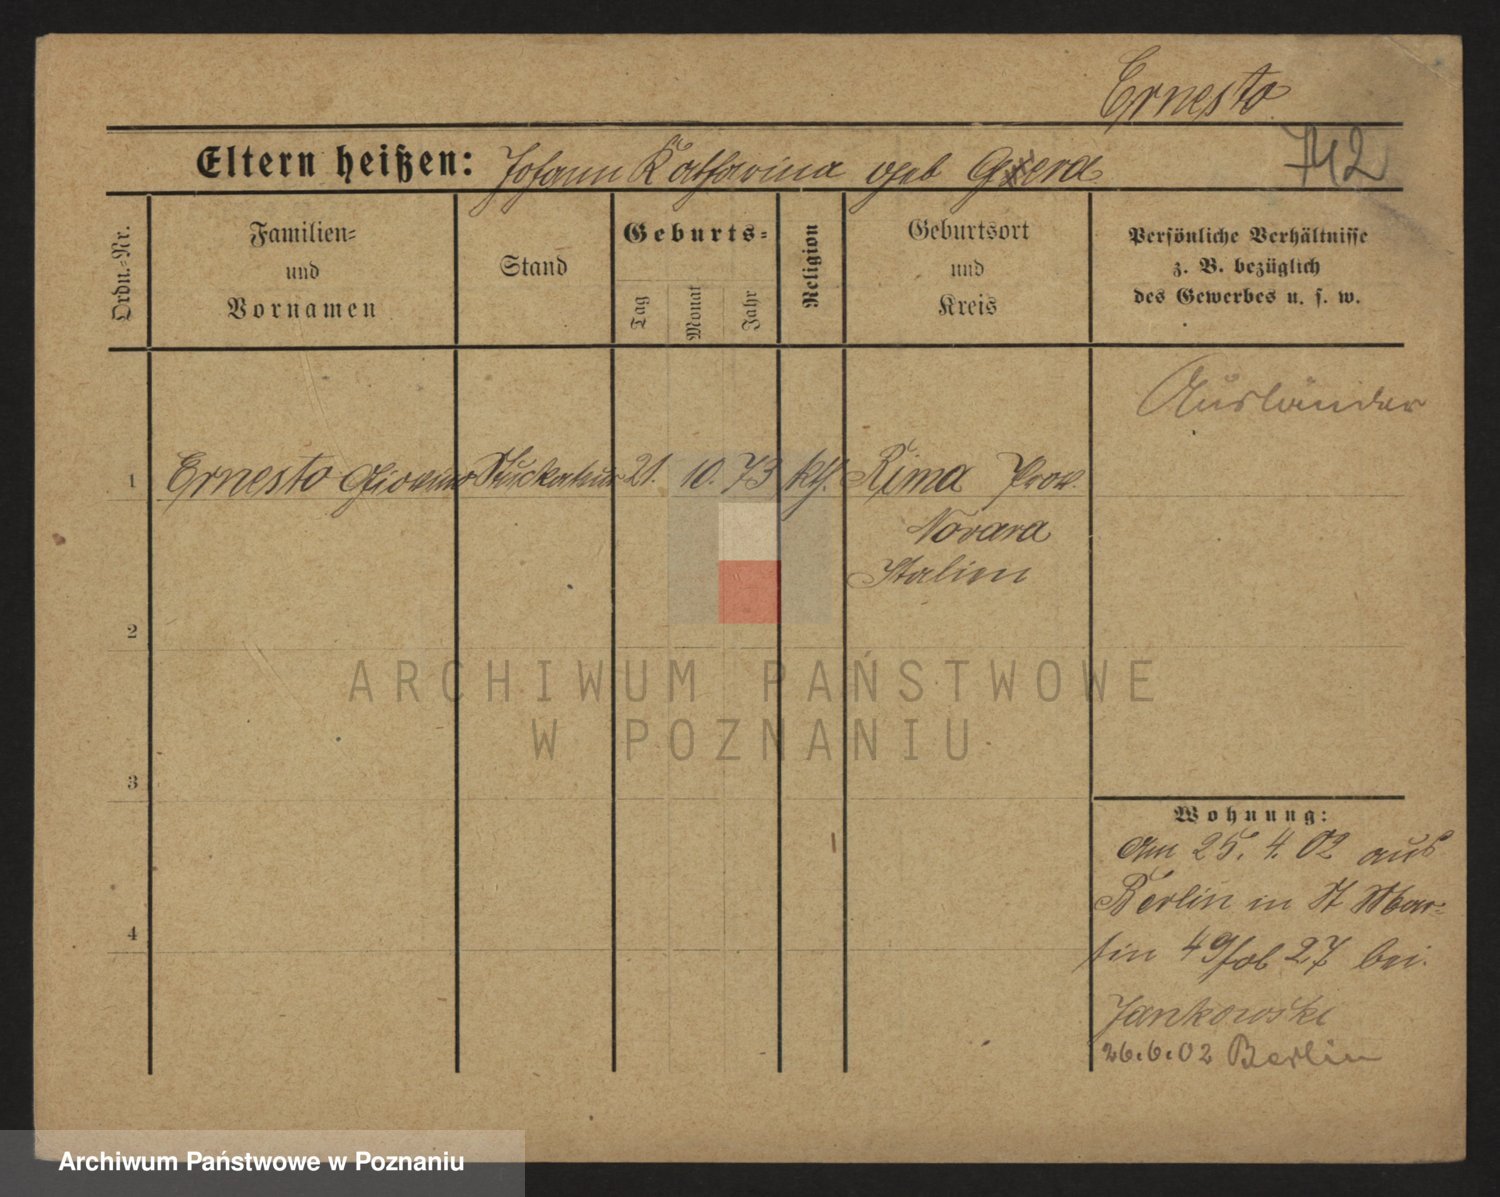 Ernesto
Eltern heißen: Johann Katharina geb
742
Ordn.-Nr.
Familien-
und
Vornamen
Stand
Geburts-
Tag
Monat
Jahr
Religion
Geburtsort
und
Kreis
Persönliche Verhältnisse
z. B. bezüglich
des Gewerbes u. s. w.
Ausländer
1 Ernesto Stuckateur 21. 10. 73 kth. Rima Prov.
Novara
Italien
2
3
4
Wohnung:
Am 25. 4. 02 aus
Berlin in St Mar-
tin 27 bei
Jankowski
26.6.02 Berlin
ARCHIWUM PAŃSTWOWE
W POZNANIU
Archiwum Państwowe w Poznaniu